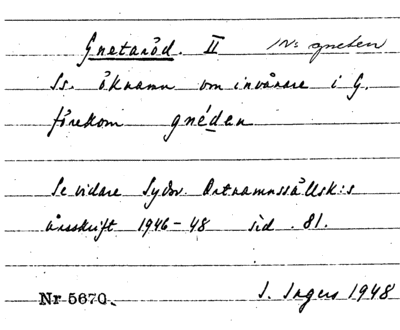 Gnetaröd. II IN: gneten
Ss. öknamn om invånare i G.
förekom gnéden
Se vidare Sydsv. Ortnamnssällsk:s
årsskrift 1946-48 sid. 81.
Nr 5670. I. Ingers 1948